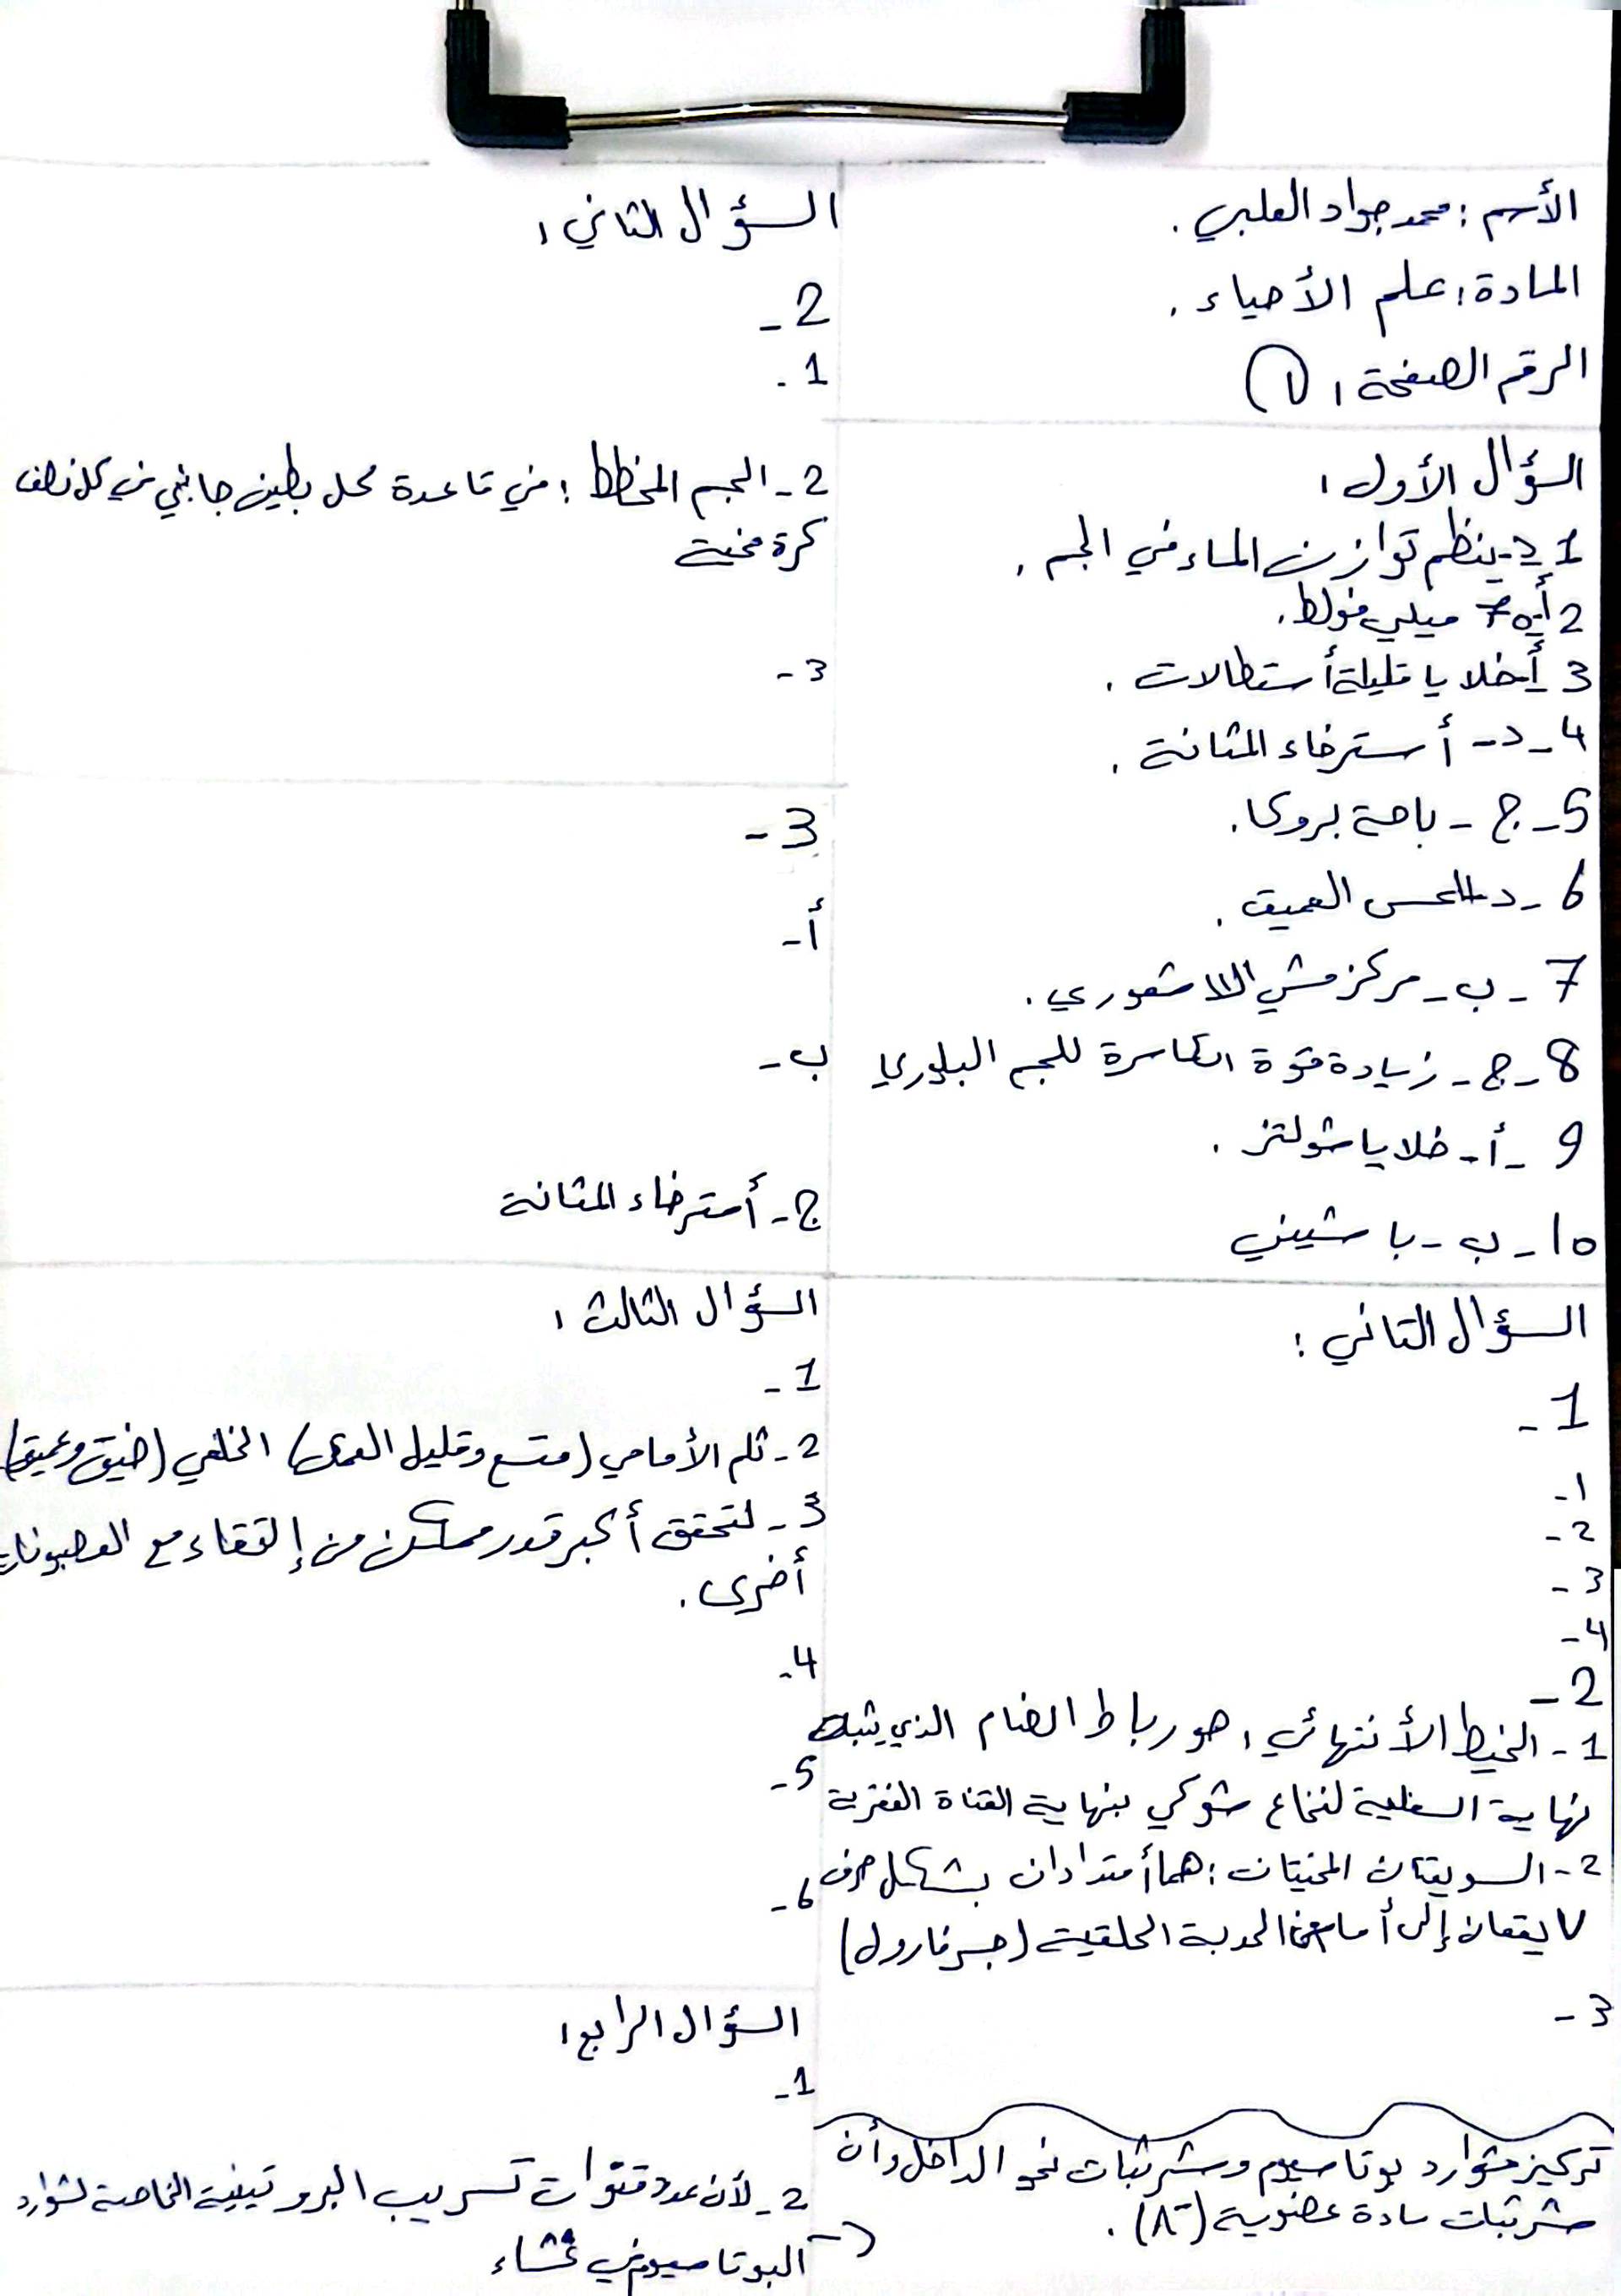 الأسم : محمد جواد العلبي .
المادة : علم الأحياء .
الرقم الصفحة : (1)
السؤال الأول :
1 د- ينظم توازن الماء في الجسم .
2 أ- 70 ميلي فولط .
3 أ- خلايا قليلة أستطالات .
4 - د - أسترخاء المثانة .
5 - ج - باحة بروكا .
6 - د - الحس العميق .
7 - ب - مركز مشي اللاشعوري .
8 - ج - زيادة قوة الكاسرة للجسم البلوري
9 - أ - خلايا شولتز .
10 - ب - باشيني
السؤال الثاني :
1 -
1 -
2 -
3 -
4 -
2 -
1 - الخيط الأنتهائي : هو رباط الضام الذي يثبت
نهاية السفلية لنخاع شوكي بنهاية القناة الفقرية
2 - السويقتان المخيتان : هما أمتدادان بشكل حرف
V يقعان إلى أمام الحدبة الحلقية (جسر فارول)
3 -
السؤال الثاني :
2 -
1 -
2 - الجسم المخطط : في قاعدة كل بطين جانبي في كل نصف
كرة مخية
3 -
3 -
أ -
ب -
ج - أسترخاء المثانة
السؤال الثالث :
1 -
2 - ثلم الأمامي (متسع وقليل العمق) الخلفي (ضيق وعميق)
3 - لتحقق أكبر قدر ممكن من إلتقاء مع العصبونات
أخرى .
4 -
5 -
6 -
السؤال الرابع :
1 -
2 - لأن عدد قنوات تسريب البروتينية الخاصة لشوارد
البوتاسيوم في غشاء
تركيز شوارد بوتاسيوم وشرثبات نحو الداخل وأن
شرثبات سادة عضوية (A⁻) .